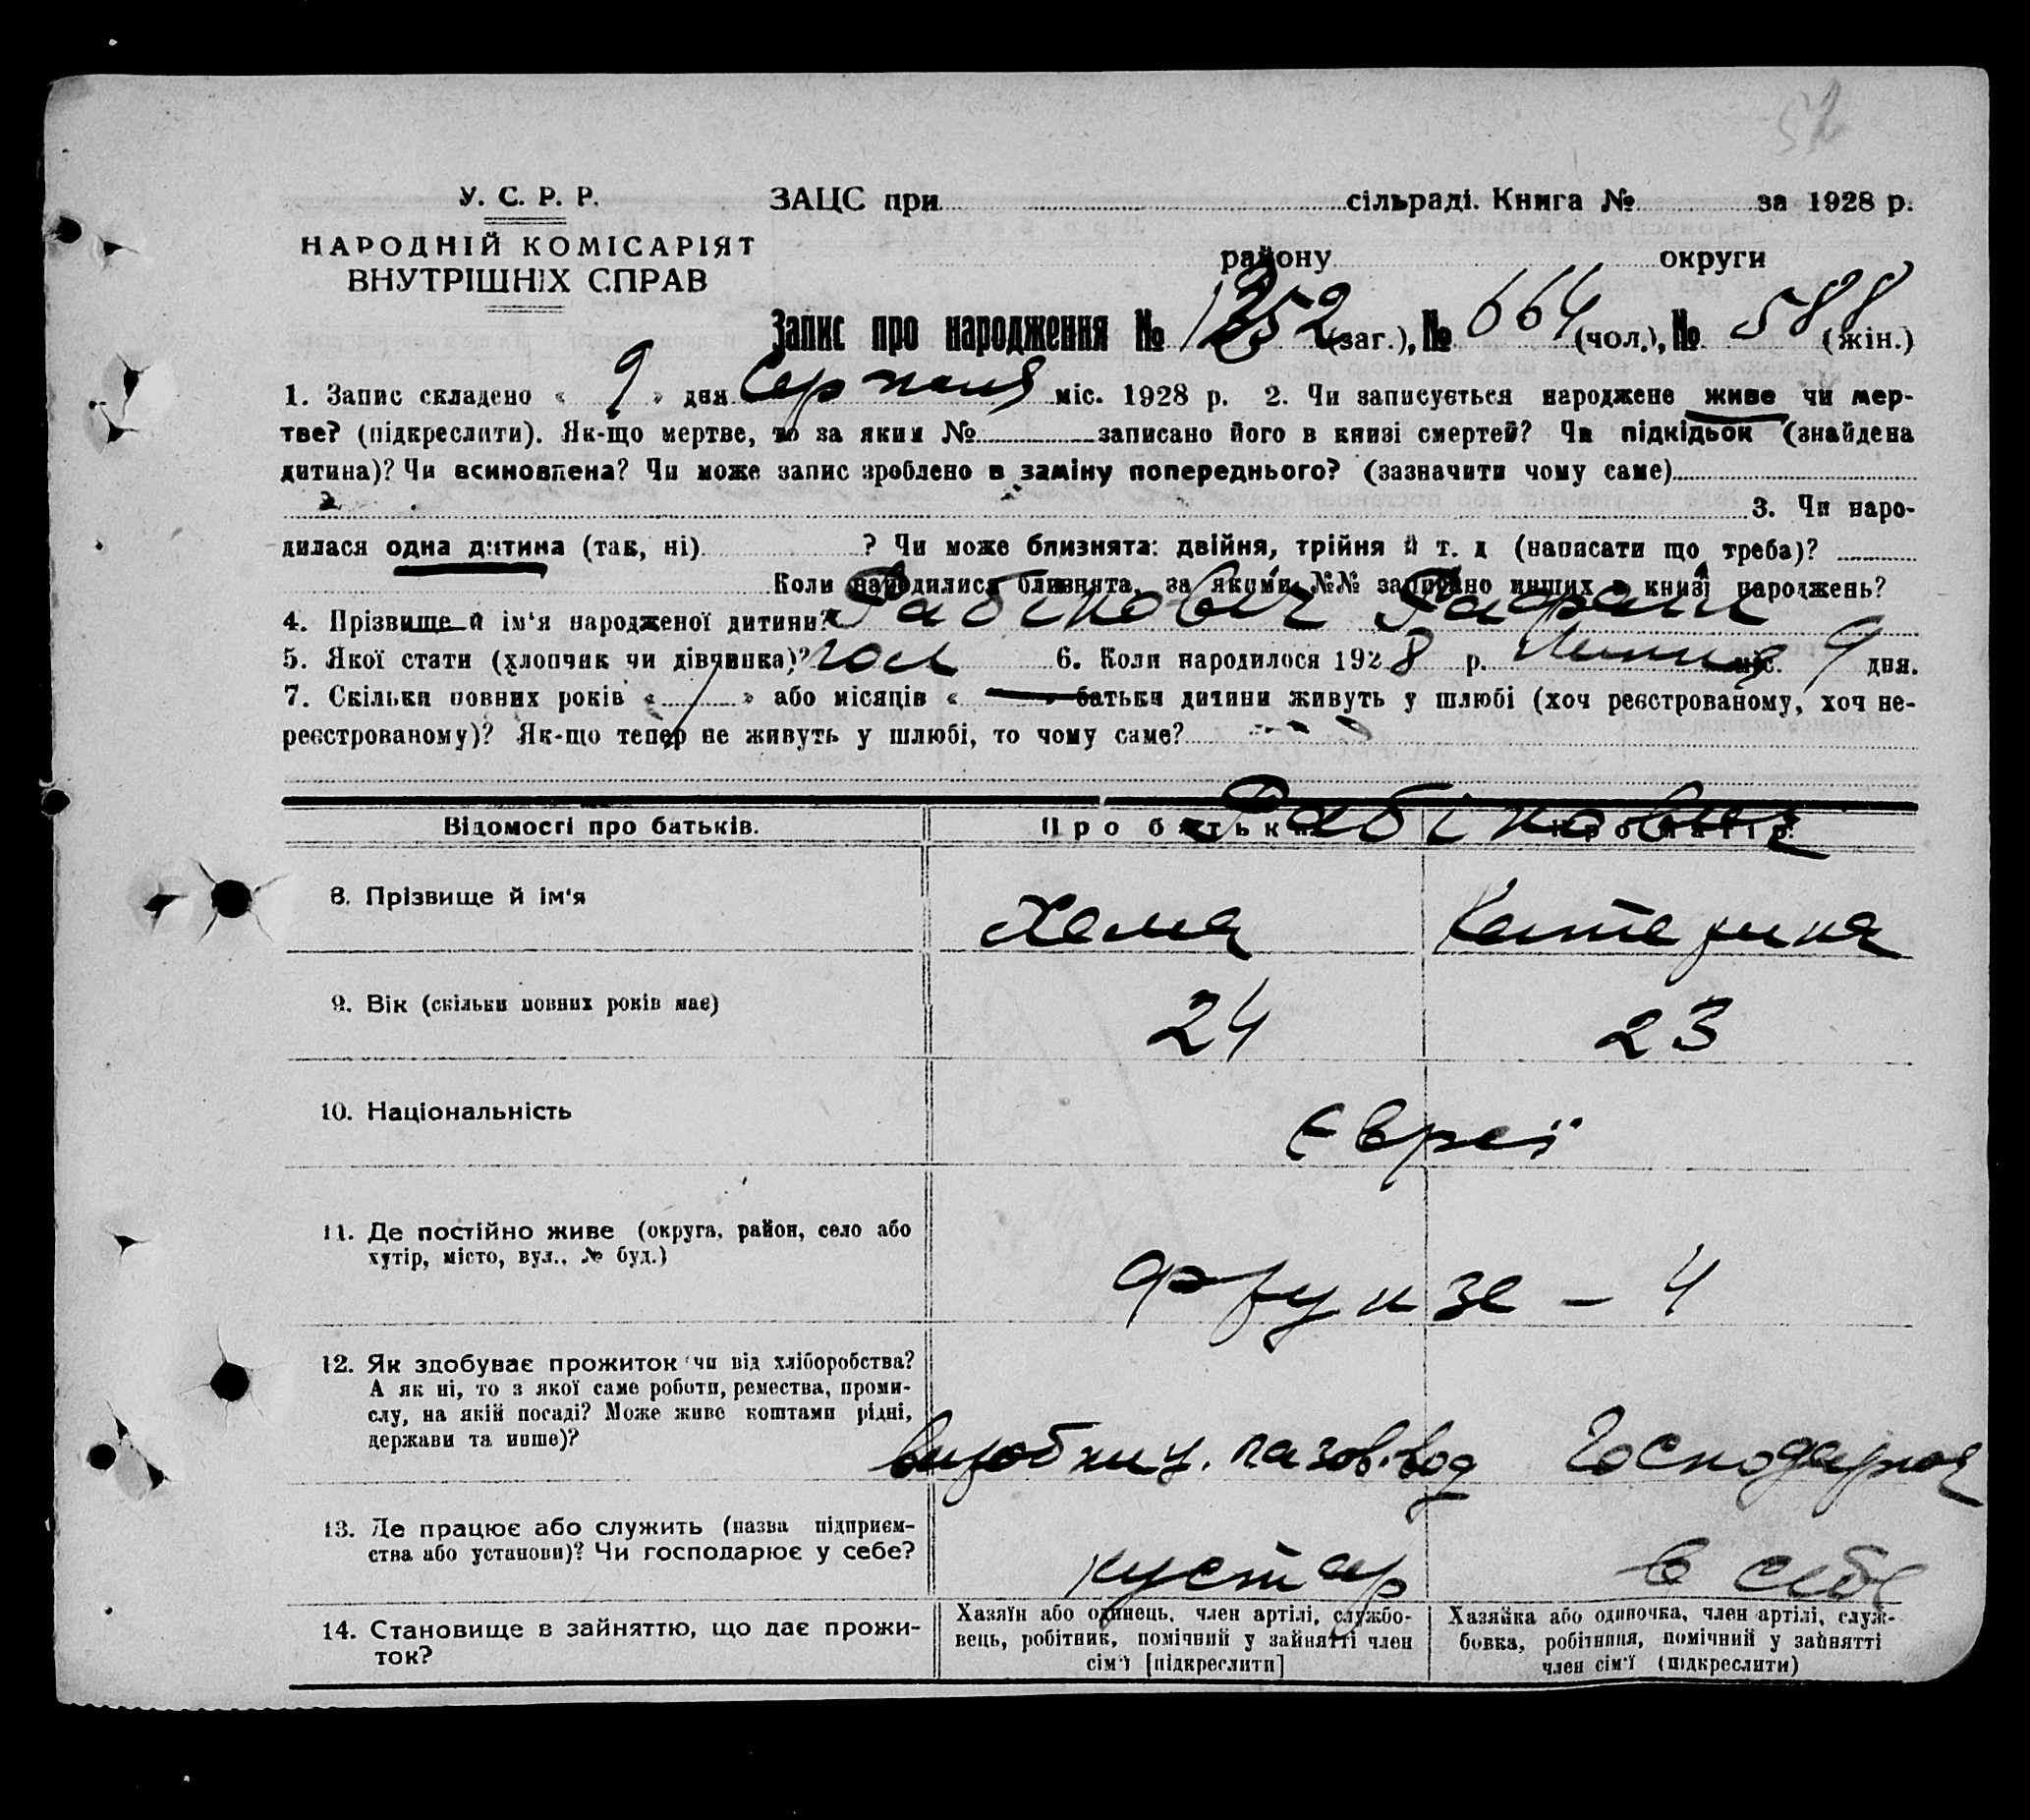 52
У. С. Р. Р.
НАРОДНІЙ КОМІСАРІЯТ
ВНУТРІШНІХ СПРАВ
ЗАЦС при сільраді. Книга № за 1928 р.
району округи
Запис про народження № 1252 (заг.), № 664 (чол.), № 588 (жін.)
1. Запис складено « 9 » дня Серпня міс. 1928 р. 2. Чи записується народжене живе чи мер-
тве? (підкреслити). Як-що мертве, то за яким № записано його в книзі смертей? Чи підкідьок (знайдена
дитина)? Чи всиновлена? Чи може запис зроблено в заміну попереднього? (зазначити чому саме)
3. Чи наро-
дилася одна дитина (так, ні) ? Чи може близнята: двійня, трійня й т. д (написати що треба)?
Коли народилися близнята, за якими №№ записано инших в книзі народжень?
4. Прізвище й ім'я народженої дитини? Рабінович Рафаїл
5. Якої стати (хлопчик чи дівчинка)? чол 6. Коли народилося 1928 р. Липня міс. 9 дня.
7. Скільки повних років « 1 » або місяців « » батьки дитини живуть у шлюбі (хоч реєстрованому, хоч не-
реєстрованому)? Як-що тепер не живуть у шлюбі, то чому саме?
Відомості про батьків. Про батька Про матір
Рабінович
8. Прізвище й ім'я Хама Катерина
9. Вік (скільки повних років має) 24 23
10. Національність Євреї
11. Де постійно живе (округа, район, село або
хутір, місто, вул., № буд.) Фрунзе – 4
12. Як здобуває прожиток чи від хліборобства?
А як ні, то з якої саме роботи, ремества, проми-
слу, на якій посаді? Може живе коштами рідні,
держави та инше)? виробниц. газов. вод Господарная
13. Де працює або служить (назва підприєм-
ства або установи)? Чи господарює у себе? кустар в себе
14. Становище в зайняттю, що дає прожи-
ток?
Хазяїн або одинець, член артілі, службо-
вець, робітник, помічний у зайнятті член
сім'ї [підкреслити]
Хазяйка або одиночка, член артілі, служ-
бовка, робітниця, помічний у зайнятті
член сім'ї (підкреслити)